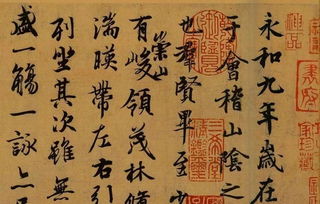 永和九年歲在
于會稽山陰之
也羣賢畢至少
崇山
有峻領茂林脩
湍暎帶左右引
列坐其次雖無
盛一觴一詠亦